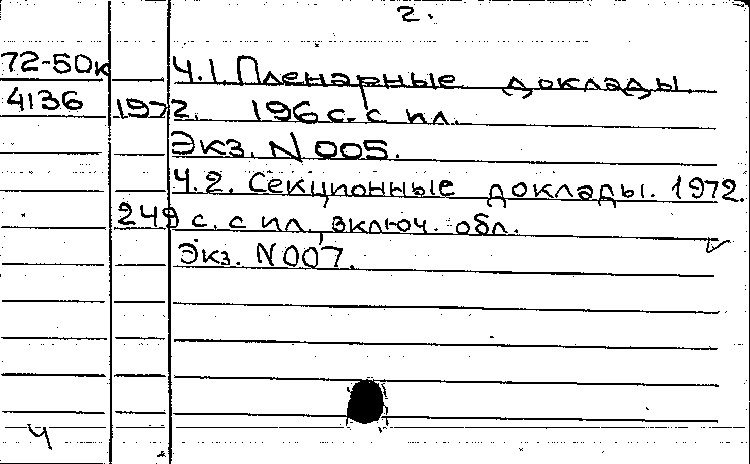 2.
72-50к Ч.1. Пленарные доклады.
4136 1972. 196 с. с ил.
Экз. N 005.
Ч.2. Секционные доклады. 1972.
249 с. с ил., включ. обл.
Экз. N 007.
Ч